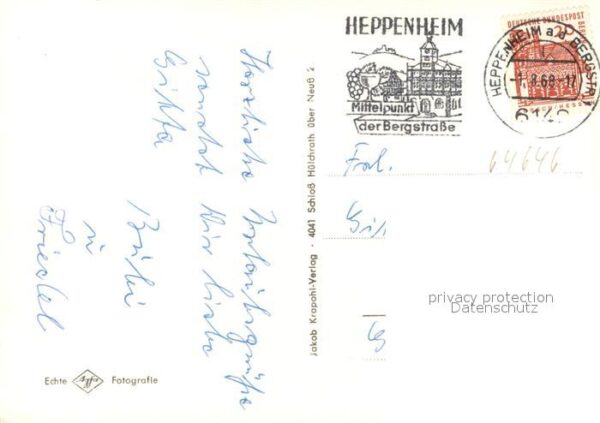 HEPPENHEIM
Mittelpunkt
der Bergstraße
DEUTSCHE BUNDESPOST BERLIN
HEPPENHEIM a d BERGSTR
-1.8.68-17
6148
Herzliche Urlaubsgrüße
sendet Dir liebe
Gitta
u
Friedel
Frl.
64646
privacy protection
Datenschutz
Jakob Krapohl-Verlag · 4041 Schloß Hülchrath über Neuß 2
Echte Agfa Fotografie